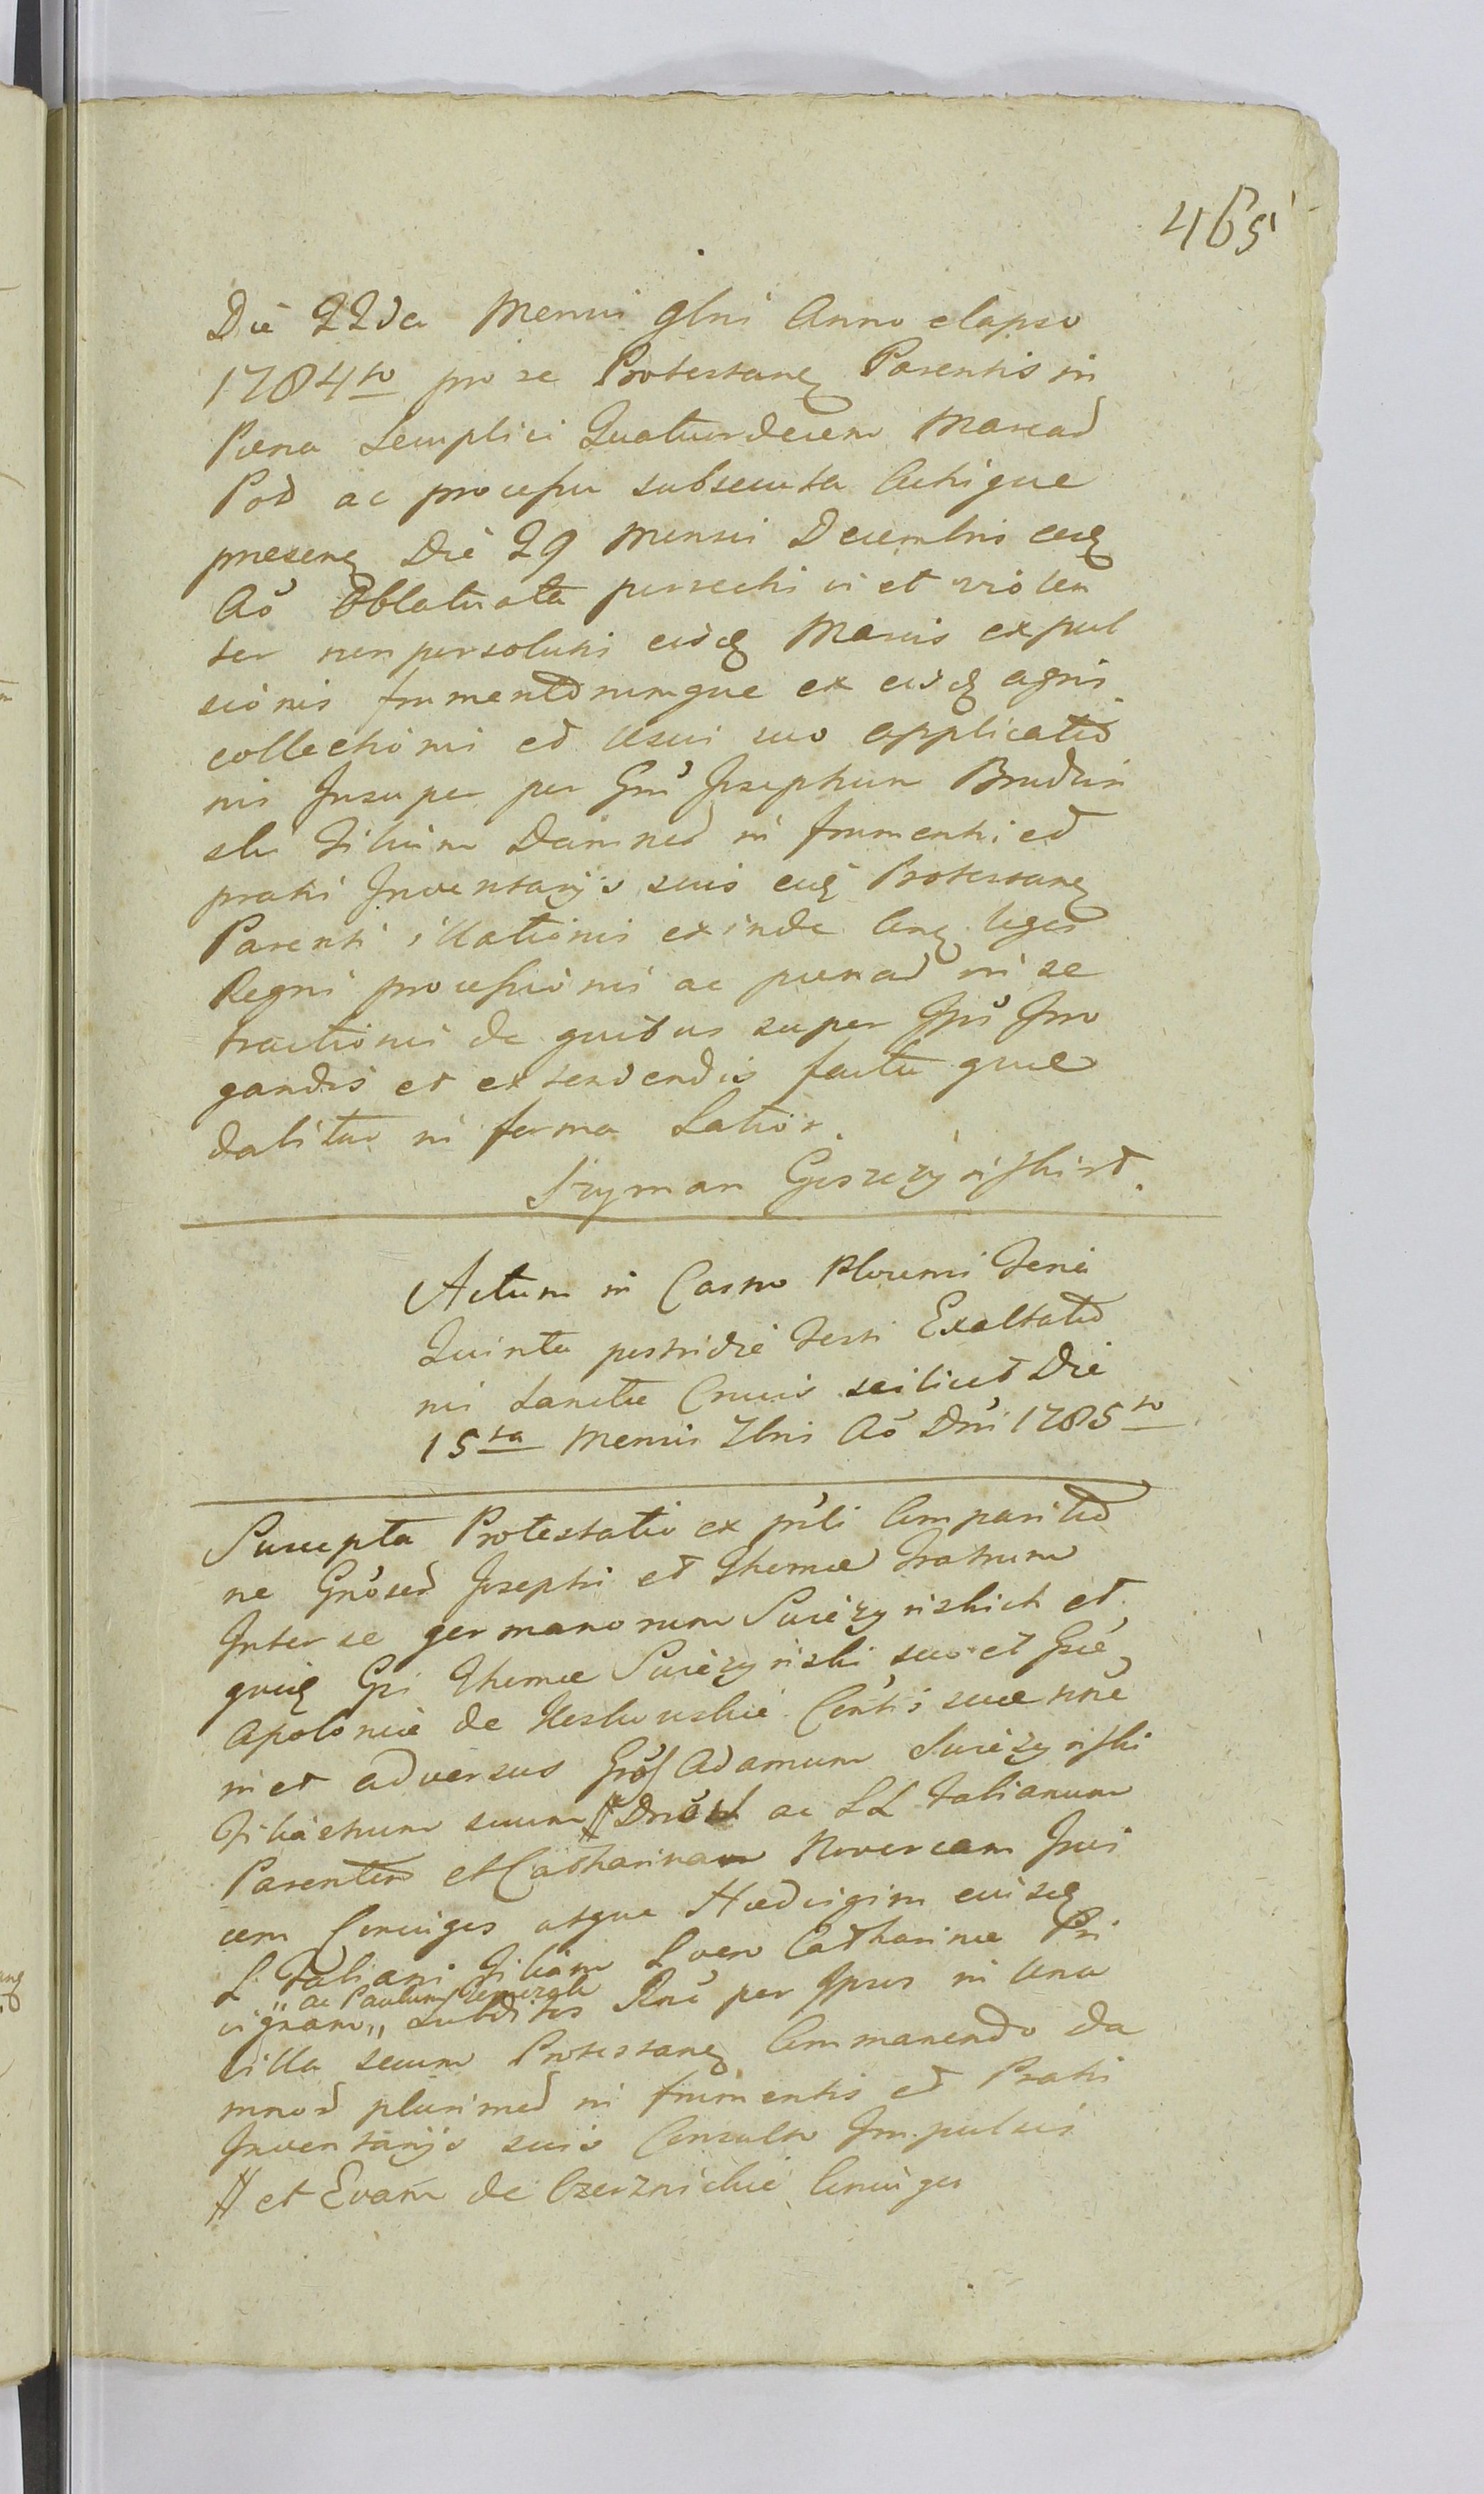 465
Die 22da Mensis 9bris Anno elapso
1784to pro se Protestanq Parentis in
Pena Semplici Quatuordecem Marcad
Pod ac processu subsecuta Actique
presenq Die 29 Mensis Decembris ejusq
Aō Oblatuata persecti vi et violen
ter non persolutis eisdq Marcis expul
sionis frumentorumque ex eisdq agris
collectionis ed Usui suo applicatio
nis Insuper per Gnū Josephum
Filium Damned in frumentis ed
pratis Inventarÿs suis eidq Protestanq
Parenti illationis exinde leges
Regni processionis ac penad in se
tractionis de quibus super Ipsū Irro
gandis et extendendis facta quae
dabitur in forma Latior.
Szyman
Actum in Castro Plocensi Feria
Quinta postridie Festi Exaltatio
nis Sanctae Crucis scilicet Die
15ta Mensis 7bris Aō Dni 1785to
Suscepta Protestatio ex pnli Comparitio
ne Gnosed Josephi et Thomae Fratrum
Inter se germanorum Swięzynskich et
quidq Gsi Thomae Swiezynski suo et Gsae
Apoloniae de Conthis suae nōe
met adversus Gnos Adamum Swiezynski
Filiastrum suum # ac LL Fabianum
Parentem et Catharinam Novercam Invi
cem Coniuges atque Hedvigim eiusdq
L Fabiani Filiam L vero Catharinae Pri
" ac Paulum
vignam " Subditos per Ipsos in Una
Villa secum Protestanq Commanendo da
mnod plurimed in frumentis ed Pratis
Inventarÿs suis Consulto Impulsis
# et Evam de Coniuges